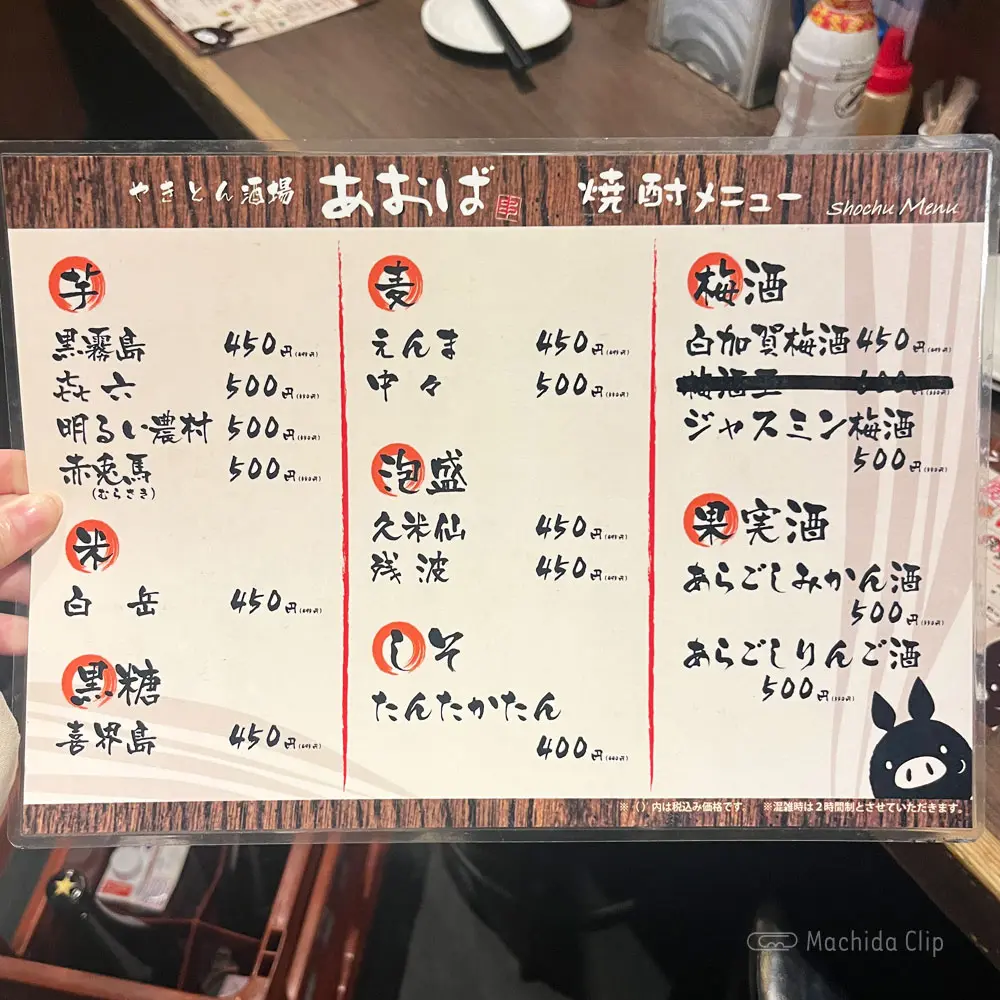 やきとん酒場 あおば 串 焼酎メニュー Shochu Menu
芋
黒霧島 450円
㐂六 500円
明るい農村 500円
赤兎馬 500円
(むらさき)
米
白岳 450円
黒糖
喜界島 450円
麦
えんま 450円
中々 500円
泡盛
久米仙 450円
残波 450円
しそ
たんたかたん
400円
梅酒
白加賀梅酒 450円
ジャスミン梅酒
500円
果実酒
あらごしみかん酒
500円
あらごしりんご酒
500円
※()内は税込み価格です。 ※混雑時は2時間制とさせていただきます。
Machida Clip